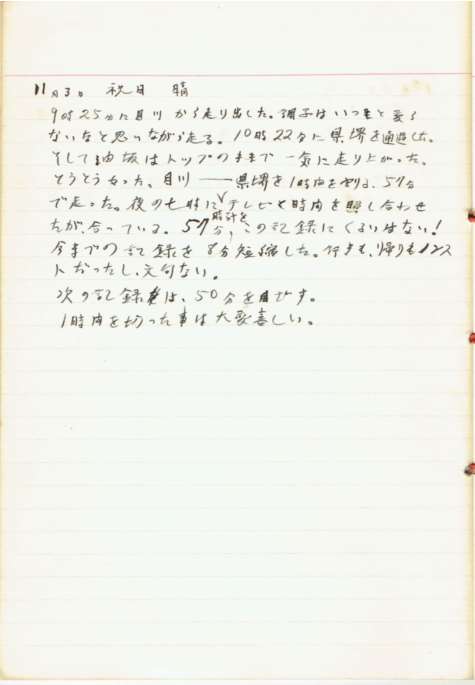 11月3日 祝日 晴
9時25分に目川から走り出した。調子はいつもと変ら
ないなと思いながら走る。10時22分に県堺を通過した。
そして油坂はトップのままで一気に走り上がった。
とうとうやった。目川――県堺を1時間を割る、57分
で走った。夜の七時に時計をテレビと時間を照し合わせ
たが、合っている。57分、この記録にくるいはない!
今までの記録を8分短縮した。行きも、帰りもノンス
トだったし、文句ない。
次の記録は、50分を目ざす。
1時間を切った事は大変喜しい。